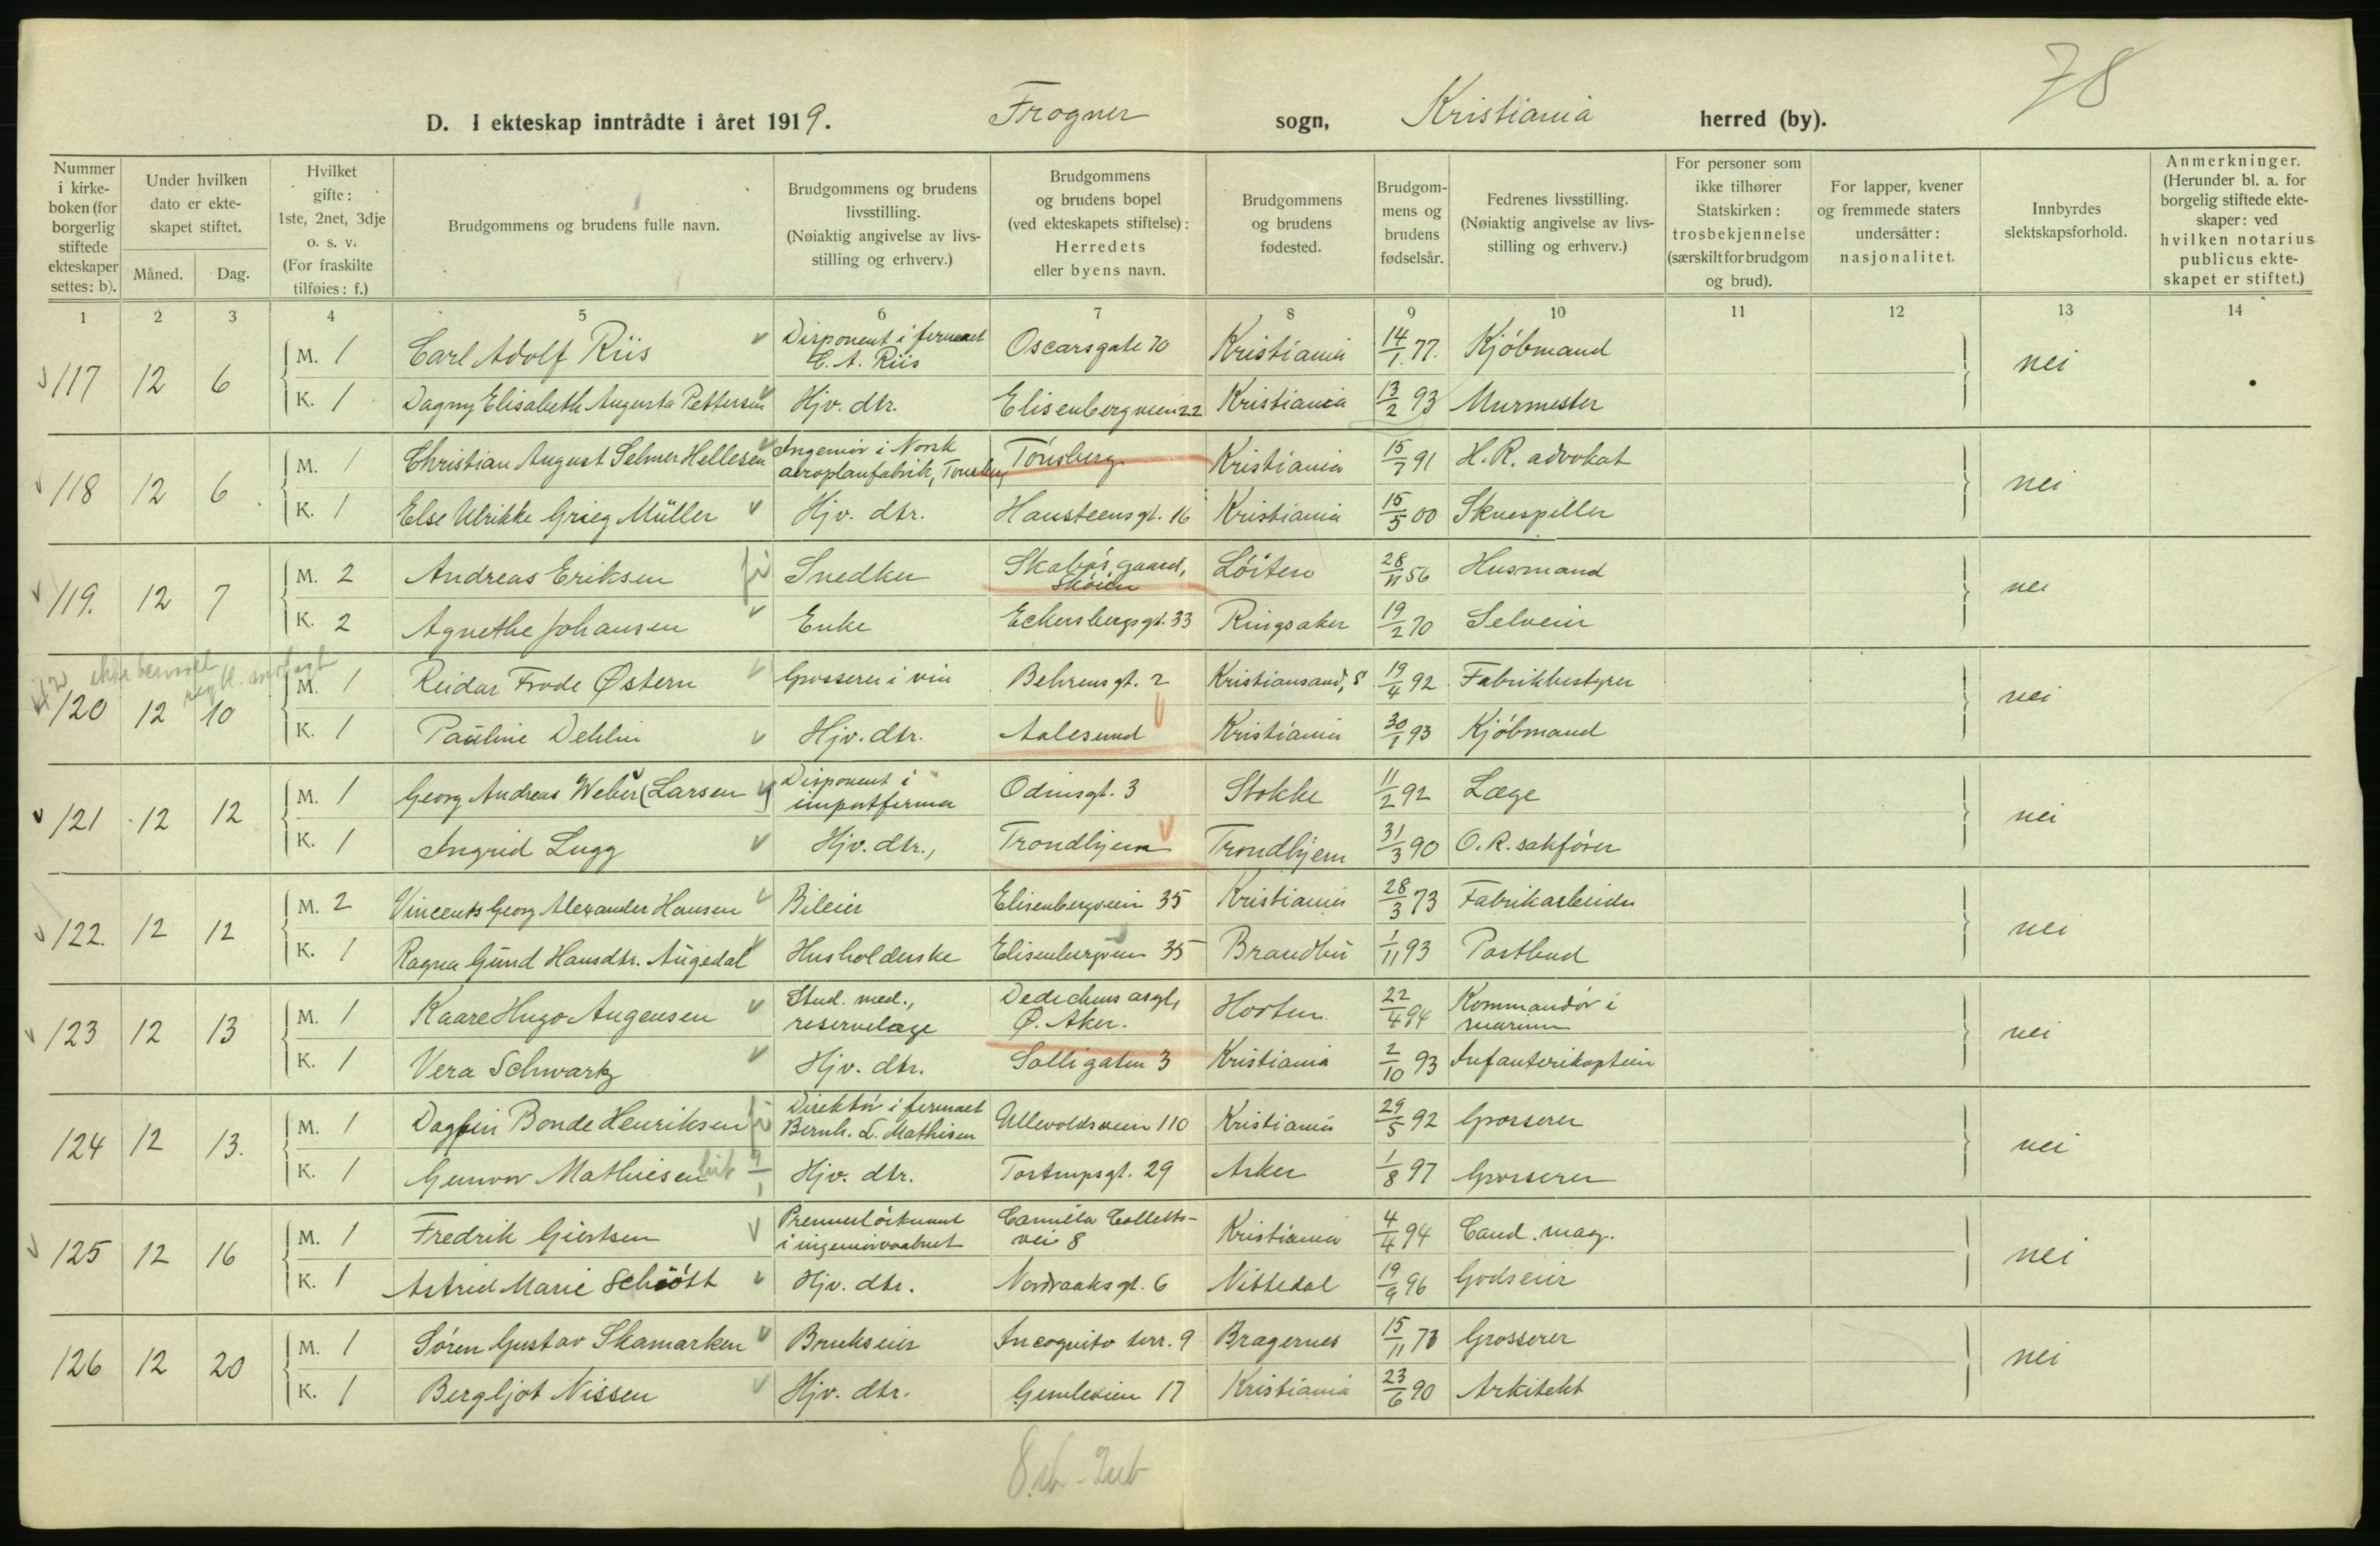 78
D. I ekteskap inntrådte i året 1919. Frogner sogn, Kristiania herred (by).
Nummer i kirkeboken (for borgerlig stiftede ekteskaper settes: b).
Under hvilken dato er ekteskapet stiftet.
Måned. Dag.
Hvilket gifte: 1ste, 2net, 3dje o. s. v. (For fraskilte tilføies: f.)
Brudgommens og brudens fulle navn.
Brudgommens og brudens livsstilling. (Nøiaktig angivelse av livsstilling og erhverv.)
Brudgommens og brudens bopel (ved ekteskapets stiftelse): Herredets eller byens navn.
Brudgommens og brudens fødested.
Brudgommens og brudens fødselsår.
Fedrenes livsstilling. (Nøiaktig angivelse av livsstilling og erhverv.)
For personer som ikke tilhører Statskirken: trosbekjennelse (særskilt for brudgom og brud).
For lapper, kvener og fremmede staters undersåtter: nasjonalitet.
Innbyrdes slektskapsforhold.
Anmerkninger. (Herunder bl. a. for borgelig stiftede ekteskaper: ved hvilken notarius publicus ekteskapet er stiftet.)
1 2 3 4 5 6 7 8 9 10 11 12 13 14
117 12 6 M. 1 Carl Adolf Riis Disponent i firmaet C. A. Riis Oscarsgate 70 Kristiania 14/1 77. Kjøbmand nei
K. 1 Dagny Elisabeth Augusta Pettersen Hjv. dtr. Elisenbergveien 22 Kristiania 13/2 93 Murmester
118 12 6 M. 1 Christian August Selmer Hellesen Ingeniør i Norsk aeroplanfabrik, Tønsberg Tønsberg Kristiania 15/7 91 H. R. advokat nei
K. 1 Else Ulrikke Grieg Müller Hjv. dtr. Hansteensgt. 16 Kristiania 15/5 00 Skuespiller
119. 12 7 M. 2 Andreas Eriksen Snedker Skabos gaard, Skøien Løiten 28/11 56 Husmand nei
K. 2 Agnethe Johansen Enke Eckersbergsgt. 33 Ringsaker 19/2 70 Selveier
120 12 10 M. 1 Reidar Frode Østern Grosserer i vin Behrensgt. 2 Kristiansand, S 19/4 92 Fabrikbestyrer nei
K. 1 Pauline Dehlin Hjv. dtr. Aalesund Kristiania 30/1 93 Kjøbmand
121 12 12 M. 1 Georg Andreas Weber (Larsen) Disponent i importfirma Odinsgt. 3 Stokke 11/2 92 Læge nei
K. 1 Ingrid Lugg Hjv. dtr., Trondhjem Trondhjem 31/3 90 O. R. sakfører
122. 12 12 M. 2 Vincents Georg Alexander Hansen Bileier Elisenbergveien 35 Kristiania 28/3 73 Fabrikarbeider nei
K. 1 Ragna Gund Hansdtr. Augedal Husholderske Elisenbergveien 35 Brandbu 1/11 93 Postbud
123 12 13 M. 1 Kaare Hugo Augensen Stud. med., reservelæge Dedichens asyl, Ø. Aker. Horten 22/4 94 Kommandør i marinen nei
K. 1 Vera Schwartz Hjv. dtr. Solligaten 3 Kristiania 2/10 93 Infanterikaptein
124 12 13. M. 1 Dagfin Bonde Henriksen Direktør i firmaet Bernh. L. Mathisen Ullevoldsveien 110 Kristiania 29/5 92 Grosserer nei
K. 1 Gunvor Mathiesen Hjv. dtr. Tostrupsgt. 29 Asker 1/8 97 Grosserer
125 12 16 M. 1 Fredrik Giertsen Premierløitnant i ingeniørvaabnet Camilla Colletts-vei 8 Kristiania 4/4 94 Cand. mag. nei
K. 1 Astrid Marie Schiøtt Hjv. dtr. Nordraaksgt. 6 Nittedal 19/9 96 Godseier
126 12 20 M. 1 Søren Gustav Skamarken Brukseier Incognito terr. 9 Bragernes 15/11 78 Grosserer nei
K. 1 Bergljot Nissen Hjv. dtr. Gimleveien 17 Kristiania 23/6 90 Arkitekt